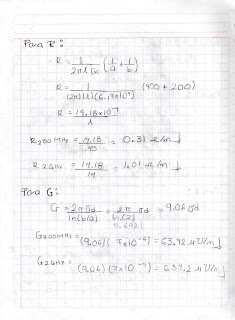 Para R:
R = 1 / 2πl δσc (1/a + 1/b)
R = 1 / (2π)(l)(6.17x10⁷) (400 + 200)
R = 14.18x10⁻⁷ / δ
R 200 MHz = 14.18 / = 0.31 Ω/m
R 2GHz = 14.18 / 14 = 1.01 Ω/m
Para G:
G = 2πσd / ln(b/a) = 2π / ln(2) σd = 9.06 σd
0.6931
G 200MHz = (9.06)(7x10⁻⁶) = 63.42 μ℧/m
G 2GHz = (9.06)(7x10⁻⁵) = 634.2 μ℧/m